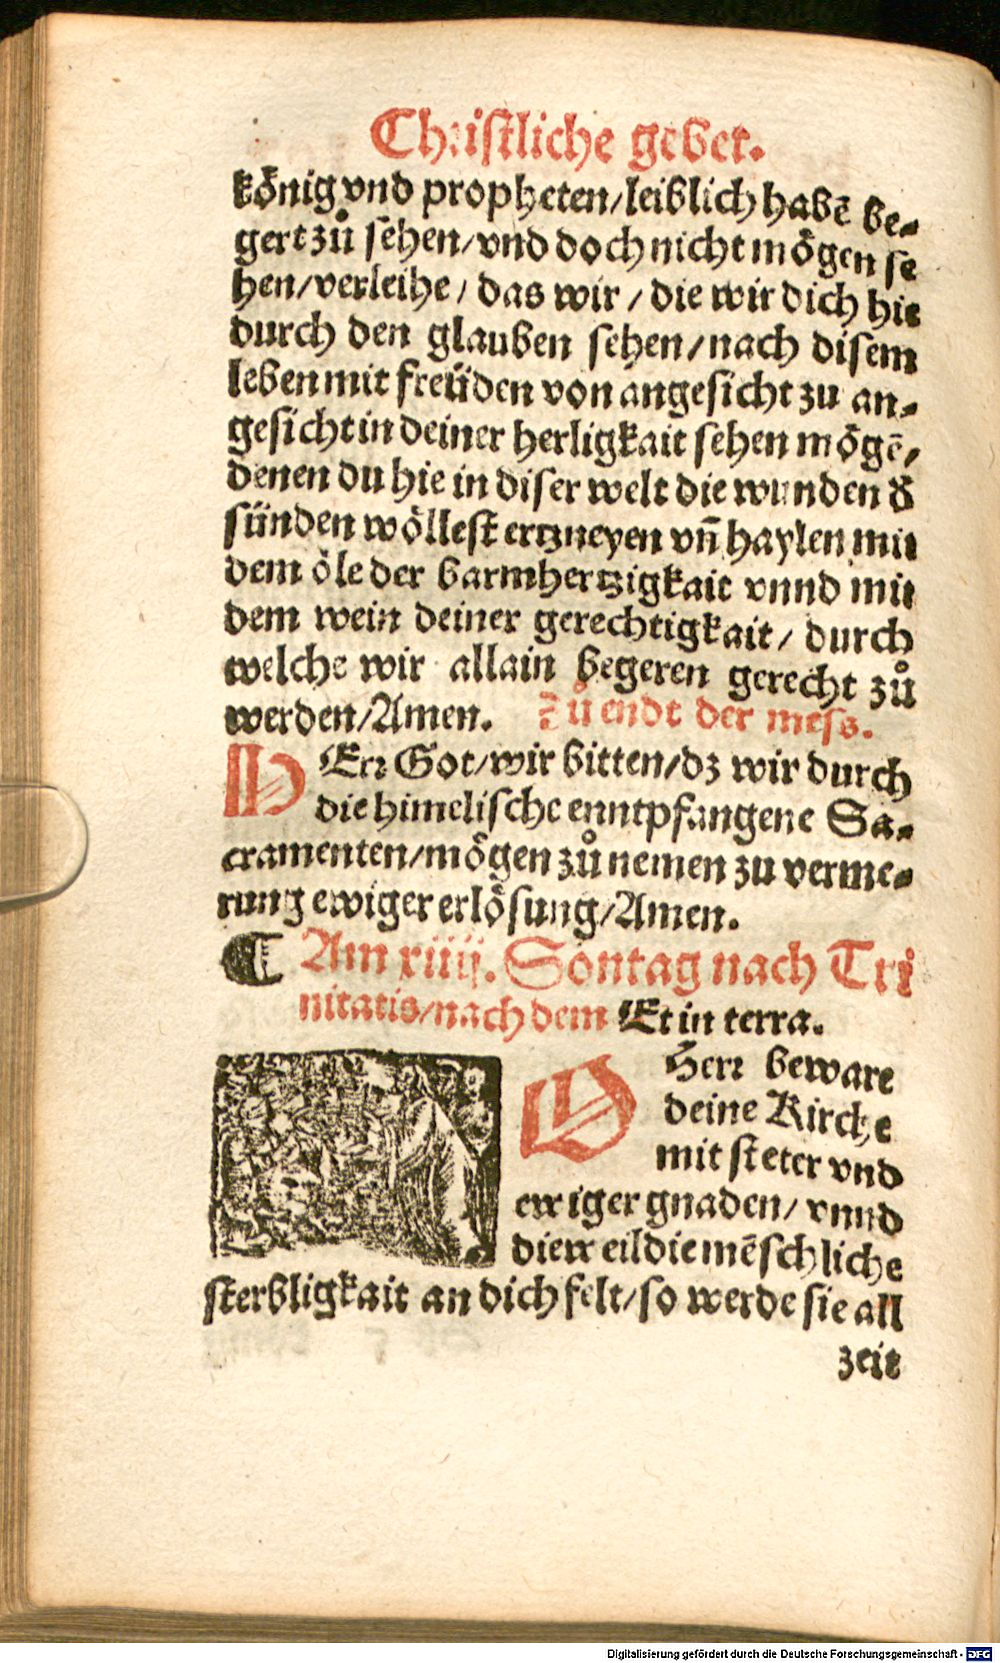 Christliche gebet.
könig vnd propheten/leiblich habē be-
gert zů sehen/vnd doch nicht mögen se
hen/verleihe/ das wir/ die wir dich hie
durch den glauben sehen/nach disem
leben mit freüden von angesicht zu an-
gesicht in deiner herligkait sehen mögē/
denen du hie in diser welt die wunden ď
sünden wöllest ertzneyen vn̄ haylen mit
dem öle der barmhertzigkait vnnd mit
dem wein deiner gerechtigkait/ durch
welche wir allain begeren gerecht zů
werden/Amen. Zů endt der mess.
HErr Got/wir bitten/dz wir durch
die himelische enntpfangene Sa-
cramenten/mögen zů nemen zu verme-
rung ewiger erlösung/Amen.
¶ Am xiiij. Sontag nach Tri
nitatis/nach dem Et in terra.
O Herr beware
deine Kirche
mit steter vnd
ewiger gnaden/ vnnd
die weil die mēschliche
sterbligkait an dich felt/so werde sie all
zeit
Digitalisierung gefördert durch die Deutsche Forschungsgemeinschaft - DFG